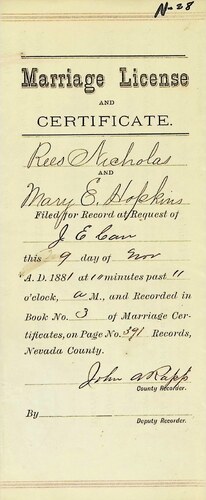 No 28
Marriage License
AND
CERTIFICATE.
Rees Nicholas
AND
Mary E. Hopkins
Filed for Record at Request of
J E Carr
this 9 day of Nov
A. D. 1881 at 10 minutes past 11
o'clock, A M., and Recorded in
Book No. 3 of Marriage Cer-
tificates, on Page No. 391 Records,
Nevada County.
John A Rapp
County Recorder.
By
Deputy Recorder.